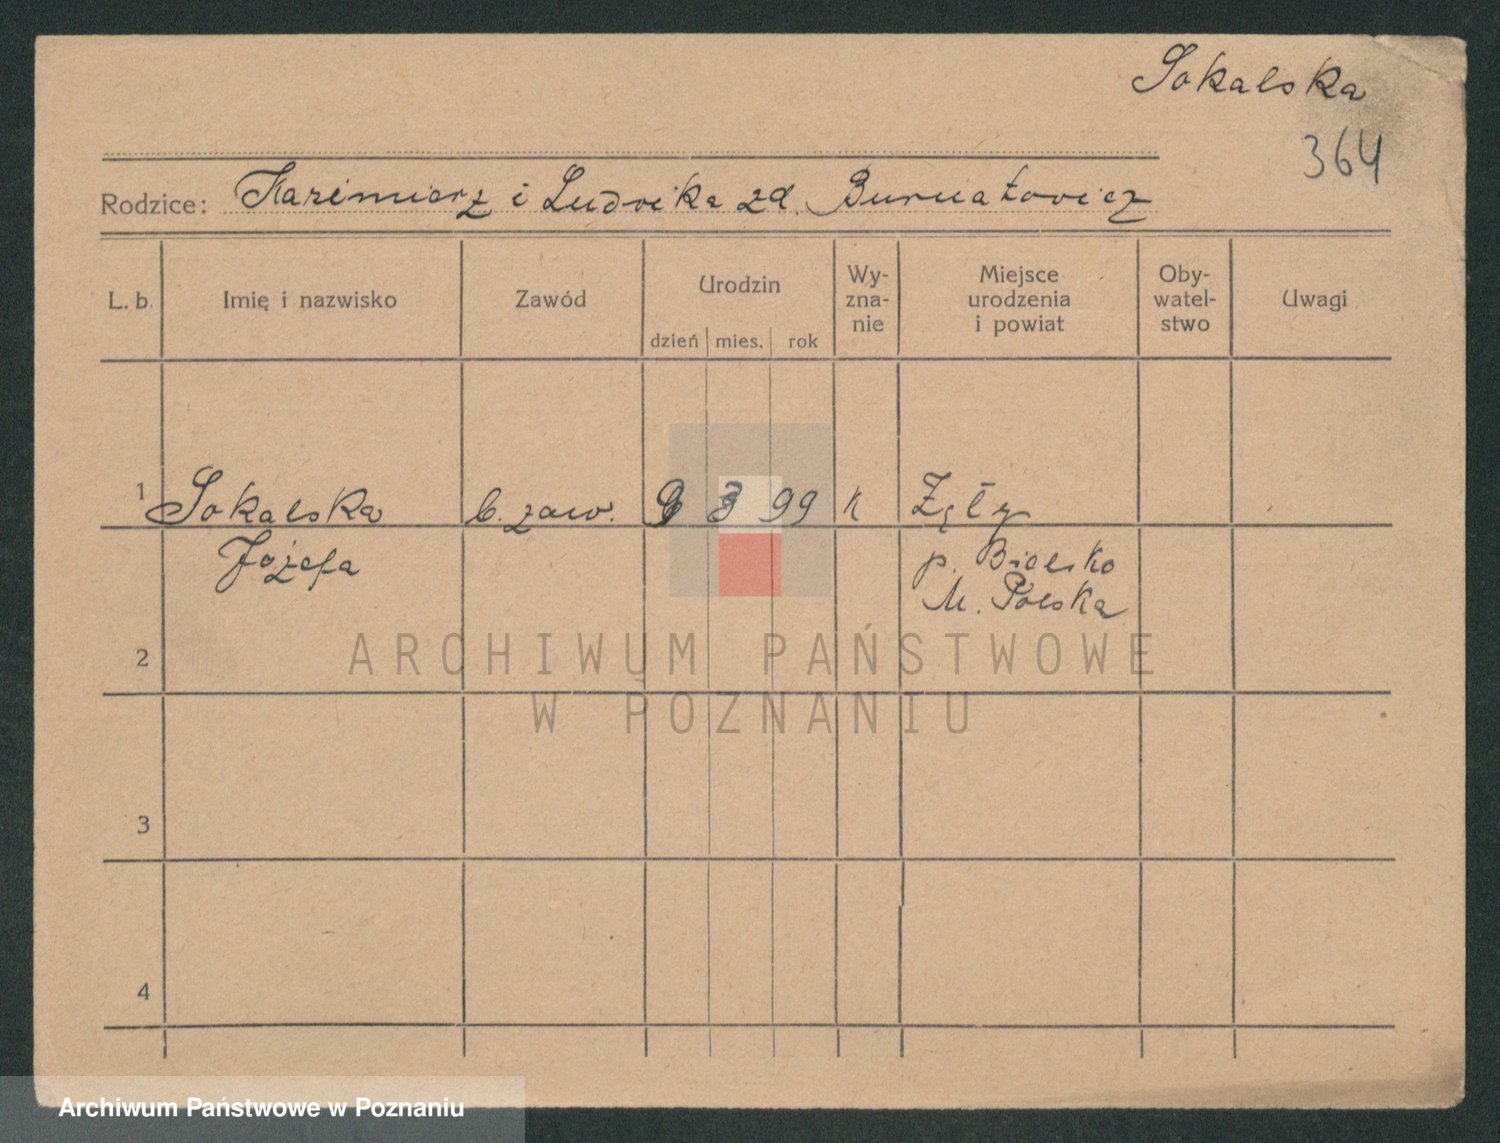 Sokalska
364
Rodzice: Kazimierz i Ludwika zd. Burnatowicz
L. b. Imię i nazwisko Zawód Urodzin Wy-zna-nie Miejsce urodzenia i powiat Oby-watel-stwo Uwagi
dzień mies. rok
1 Sokalska b. zaw. 9 3 99 k
Józefa p. Bielsko
M. Polska
2
ARCHIWUM PAŃSTWOWE
W POZNANIU
3
4
Archiwum Państwowe w Poznaniu